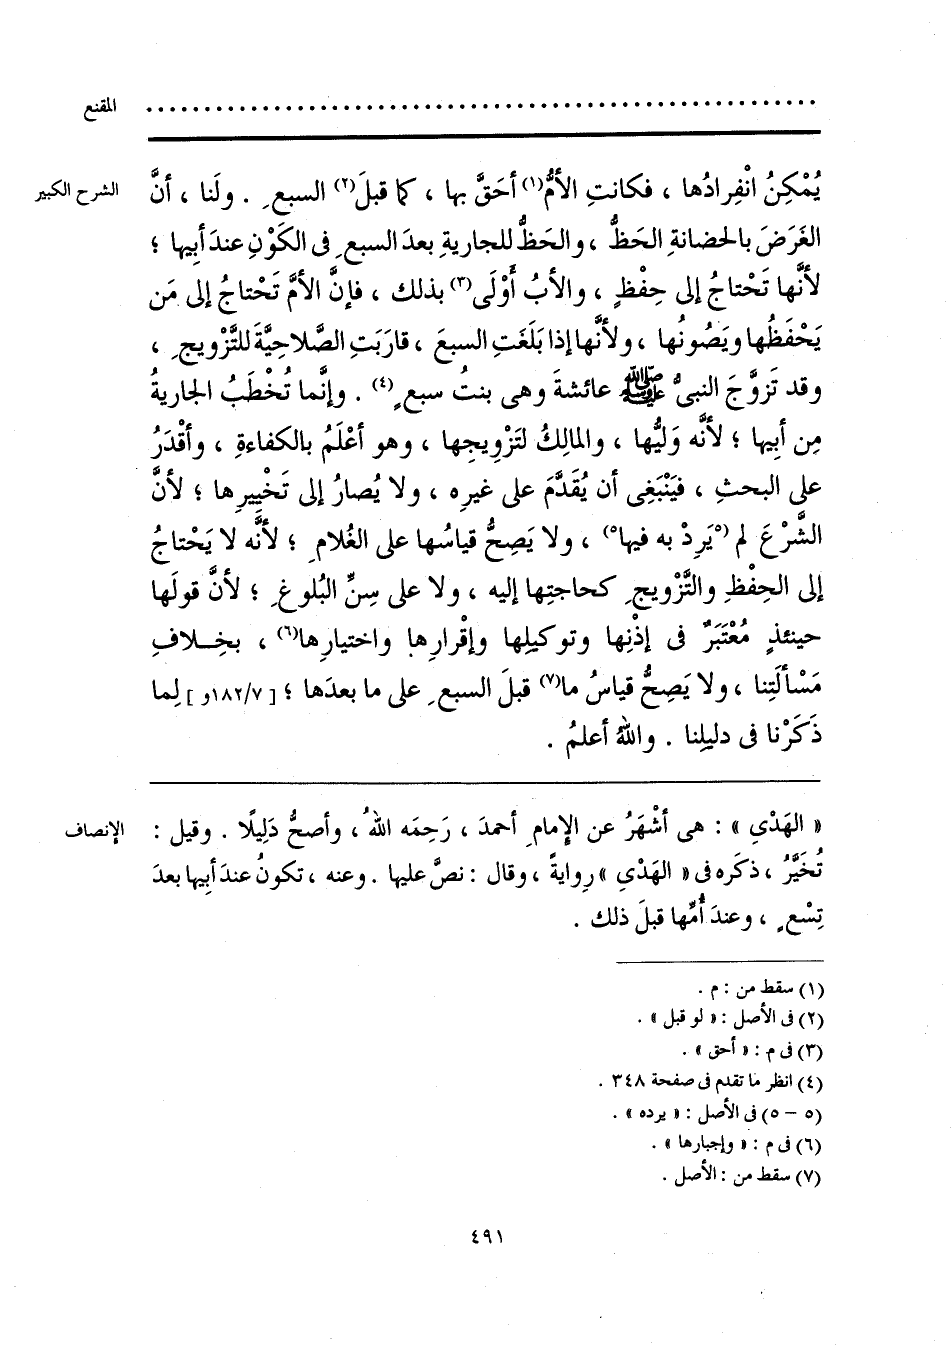 المقنع ..........................................................
الشرح الكبير
يُمْكِنُ انْفِرادُها ، فكانتِ الأمُّ(١) أحَقَّ بها ، كما قبلَ(٢) السبعِ . ولَنا ، أنَّ
الغَرَضَ بالحضانةِ الحَظُّ ، والحَظُّ للجاريةِ بعدَ السبعِ فى الكَوْنِ عندَ أبيها ؛
لأنَّها تَحْتاجُ إلى حِفْظٍ ، والأبُ أَوْلَى(٣) بذلك ، فإنَّ الأمَّ تَحْتاجُ إلى مَن
يَحْفَظُها ويَصُونُها ، ولأنَّها إذا بَلَغَتِ السبعَ ، قارَبَتِ الصَّلاحِيَّةَ للتَّزْويجِ ،
وقد تَزوَّجَ النبىُّ ﷺ عائشةَ وهى بنتُ سبعٍ(٤) . وإنَّما تُخْطَبُ الجاريةُ
مِن أبِيها ؛ لأنَّه وَلِيُّها ، والمالِكُ لتَزْوِيجِها ، وهو أعْلَمُ بالكفاءةِ ، وأقْدَرُ
على البحثِ ، فيَنْبَغِى أن يُقَدَّمَ على غيرِه ، ولا يُصارُ إلى تَخْيِيرِها ؛ لأنَّ
الشَّرْعَ لم (٥يَرِدْ به فيها٥) ، ولا يَصِحُّ قياسُها على الغُلامِ ؛ لأنَّه لا يَحْتاجُ
إلى الحِفْظِ والتَّزْويجِ كحاجتِها إليه ، ولا على سِنِّ البُلوغِ ؛ لأنَّ قولَها
حينئذٍ مُعْتَبَرٌ فى إذْنِها وتوكيلِها وإقْرارِها واختيارِها(٦) ، بخِلافِ
مَسْألَتِنا ، ولا يَصِحُّ قياسُ ما(٧) قبلَ السبعِ على ما بعدَها ؛ [ ١٨٢/٧و ] لِما
ذَكَرْنا فى دليلِنا . واللهُ أعلمُ .
الإنصاف
« الهَدْىِ » : هى أشْهَرُ عن الإمامِ أحمدَ ، رَحِمَه اللهُ ، وأصحُّ دَلِيلًا . وقيل :
تُخَيَّرُ ، ذكَره فى « الهَدْىِ » رِوايةً ، وقال : نصَّ عليها . وعنه ، تكونُ عندَ أبيها بعدَ
تِسْعٍ ، وعندَ أُمِّها قبلَ ذلك .
(١) سقط من : م .
(٢) فى الأصل : « لو قبل » .
(٣) فى م : « أحق » .
(٤) انظر ما تقدم فى صفحة ٣٤٨ .
(٥ - ٥) فى الأصل : « يرده » .
(٦) فى م : « وإجبارها » .
(٧) سقط من : الأصل .
٤٩١